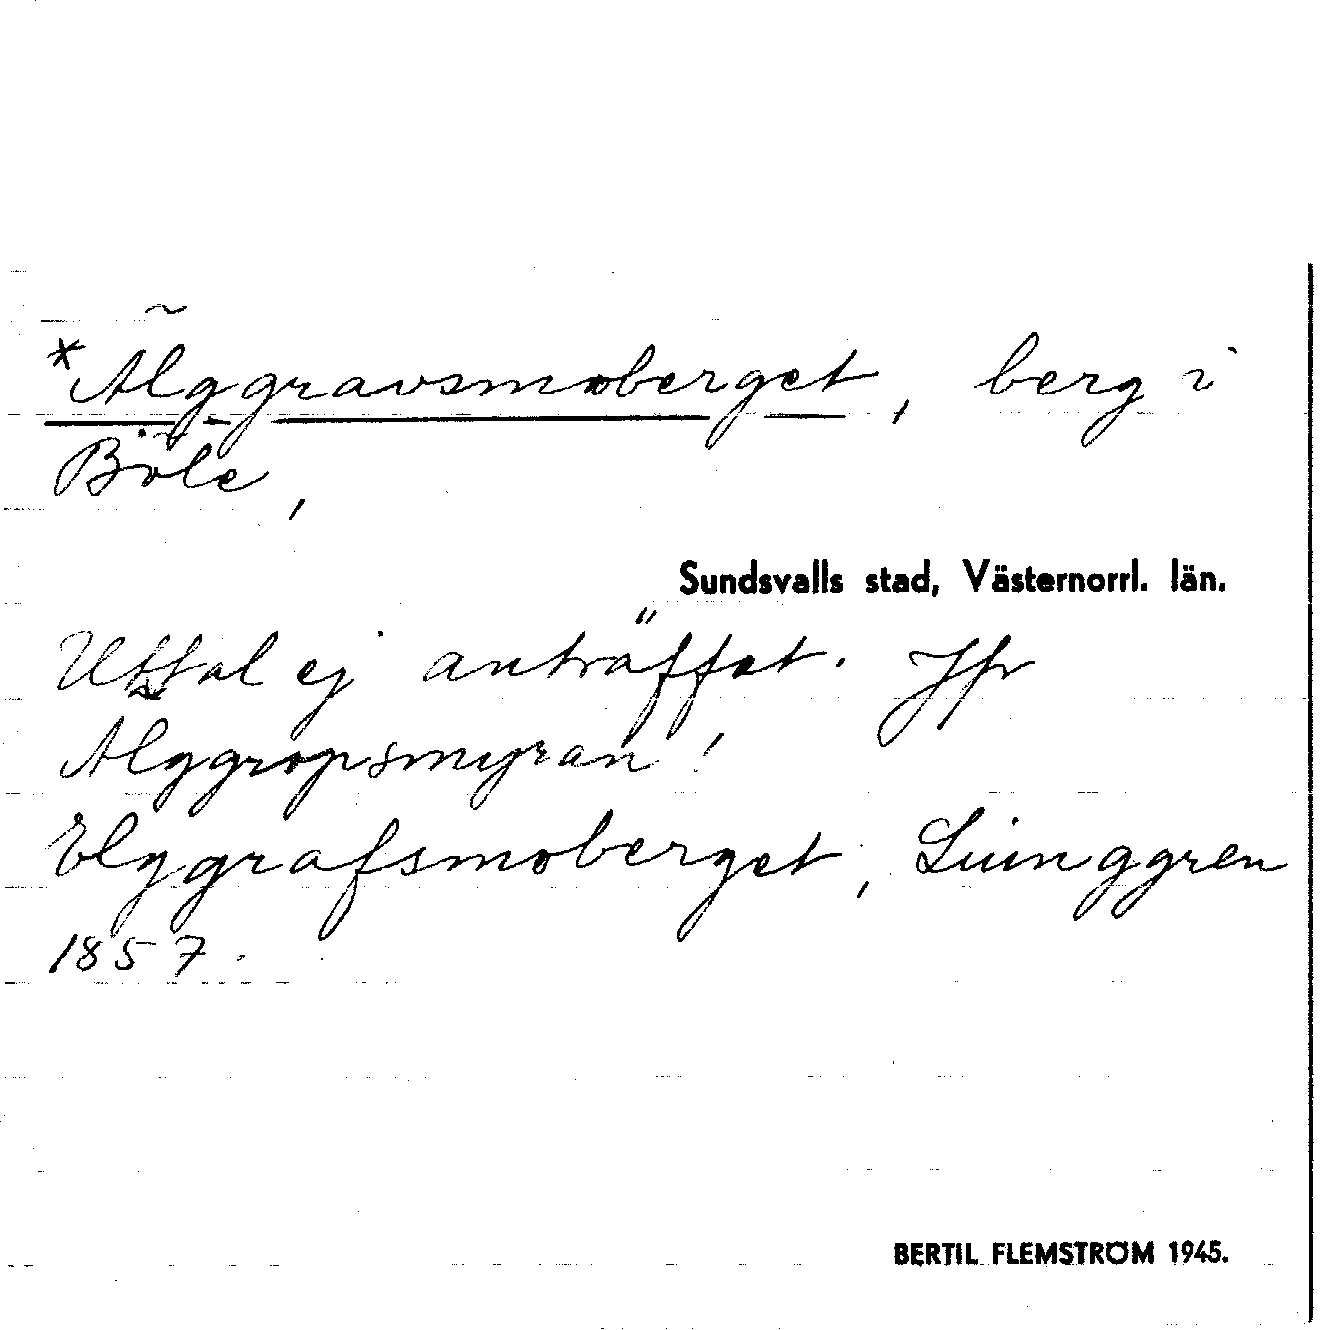 *Älggravsmoberget, berg i
Böle,
Sundsvalls stad, Västernorrl. län.
Uttal ej anträffat. Jfr
Älggropsmyran!
Elggrafsmoberget, Ljunggren
1857.
BERTIL FLEMSTRÖM 1945.